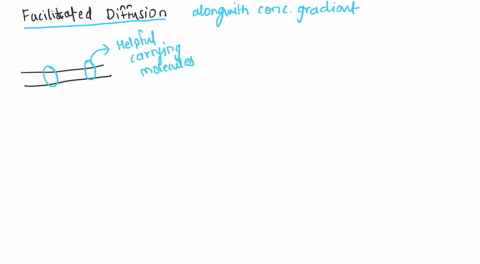 Facilitated Diffusion alongwith conc. gradient
Helpful
carrying
molecules